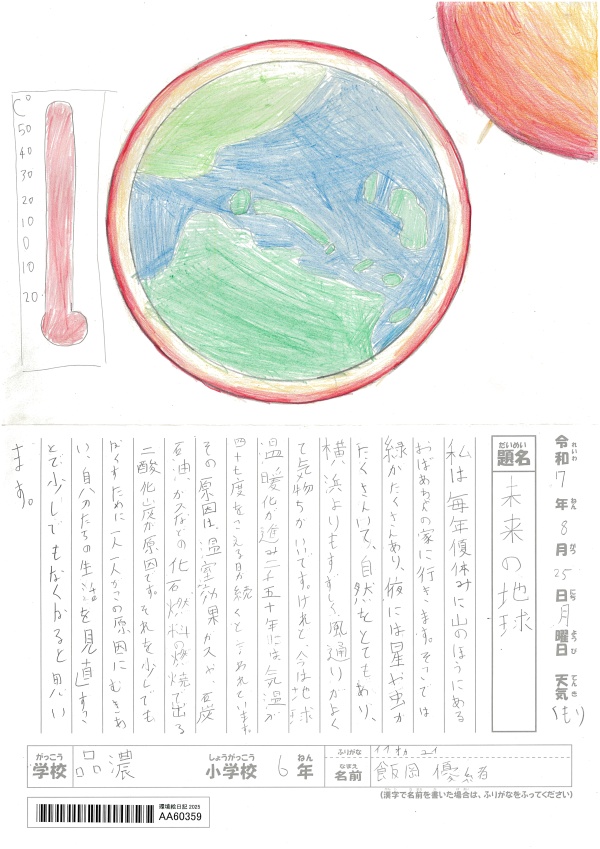 C°
50
40
30
20
10
0
10
20
令和7年8月25日月曜日 天気くもり
れいわ ねん がつ にち ようび てんき
だいめい
題名 未来の地球
私は毎年夏休みに山のほうにある
おばあちゃんの家に行きます。そこでは
緑がたくさんあり、夜には星や虫が
たくさんいて、自然をとてもあり、
横浜よりもすずしく風通りがよく
て気持ちがいいです。けれど今は地球
温暖化が進み二千五十年には気温が
四十七度をこえる日が続くと言われています。
その原因は、温室効果ガスや、石炭
石油、ガスなどの化石燃料の燃焼で出る
二酸化炭が原因です。それを少しでも
なくすために一人一人がこの原因にむきあ
い、自分たちの生活を見直すこ
とで少しでもなくなると思い
ます。
がっこう
学校 品濃
しょうがっこう ねん
小学校 6年
ふりがな イイオカ ユイ
なまえ
名前 飯岡 優緒
(漢字で名前を書いた場合は、ふりがなをふってください)
環境絵日記 2025
AA60359